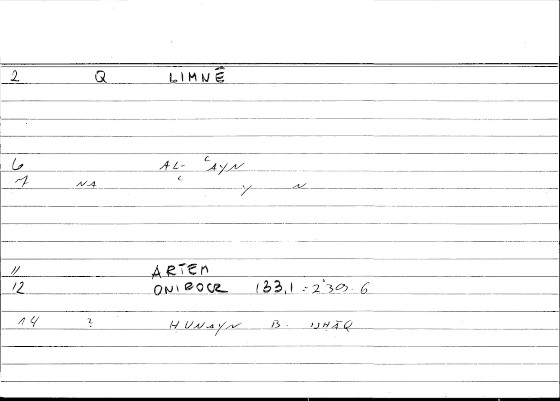 2 Q LIMNĒ
6 AL- ʿAYN
7 NA ʿ Y N
11 ARTEM
12 ONIROCR 133,1 = 239.6
14 ? HUNAYN B. ISHĀQ